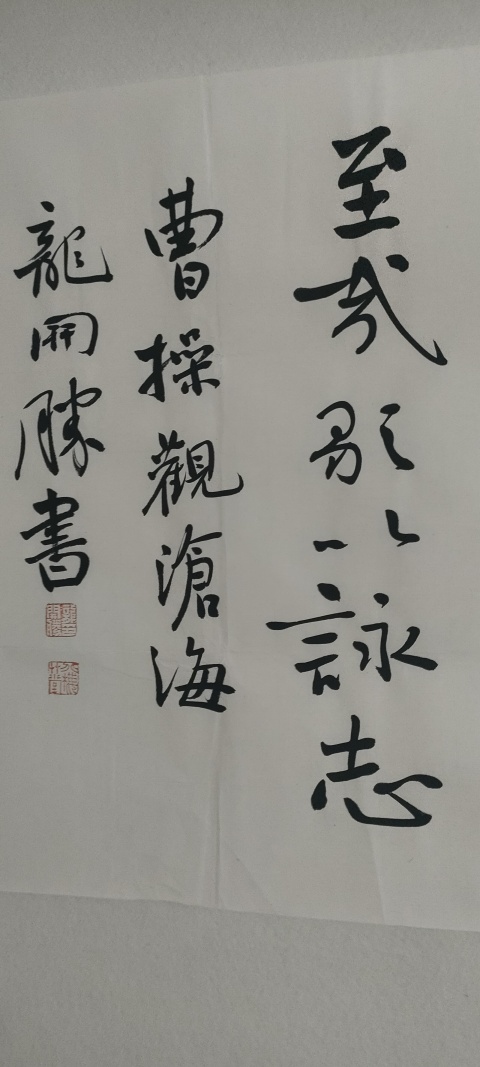 至哉歌以詠志
曹操觀滄海
龍開勝書